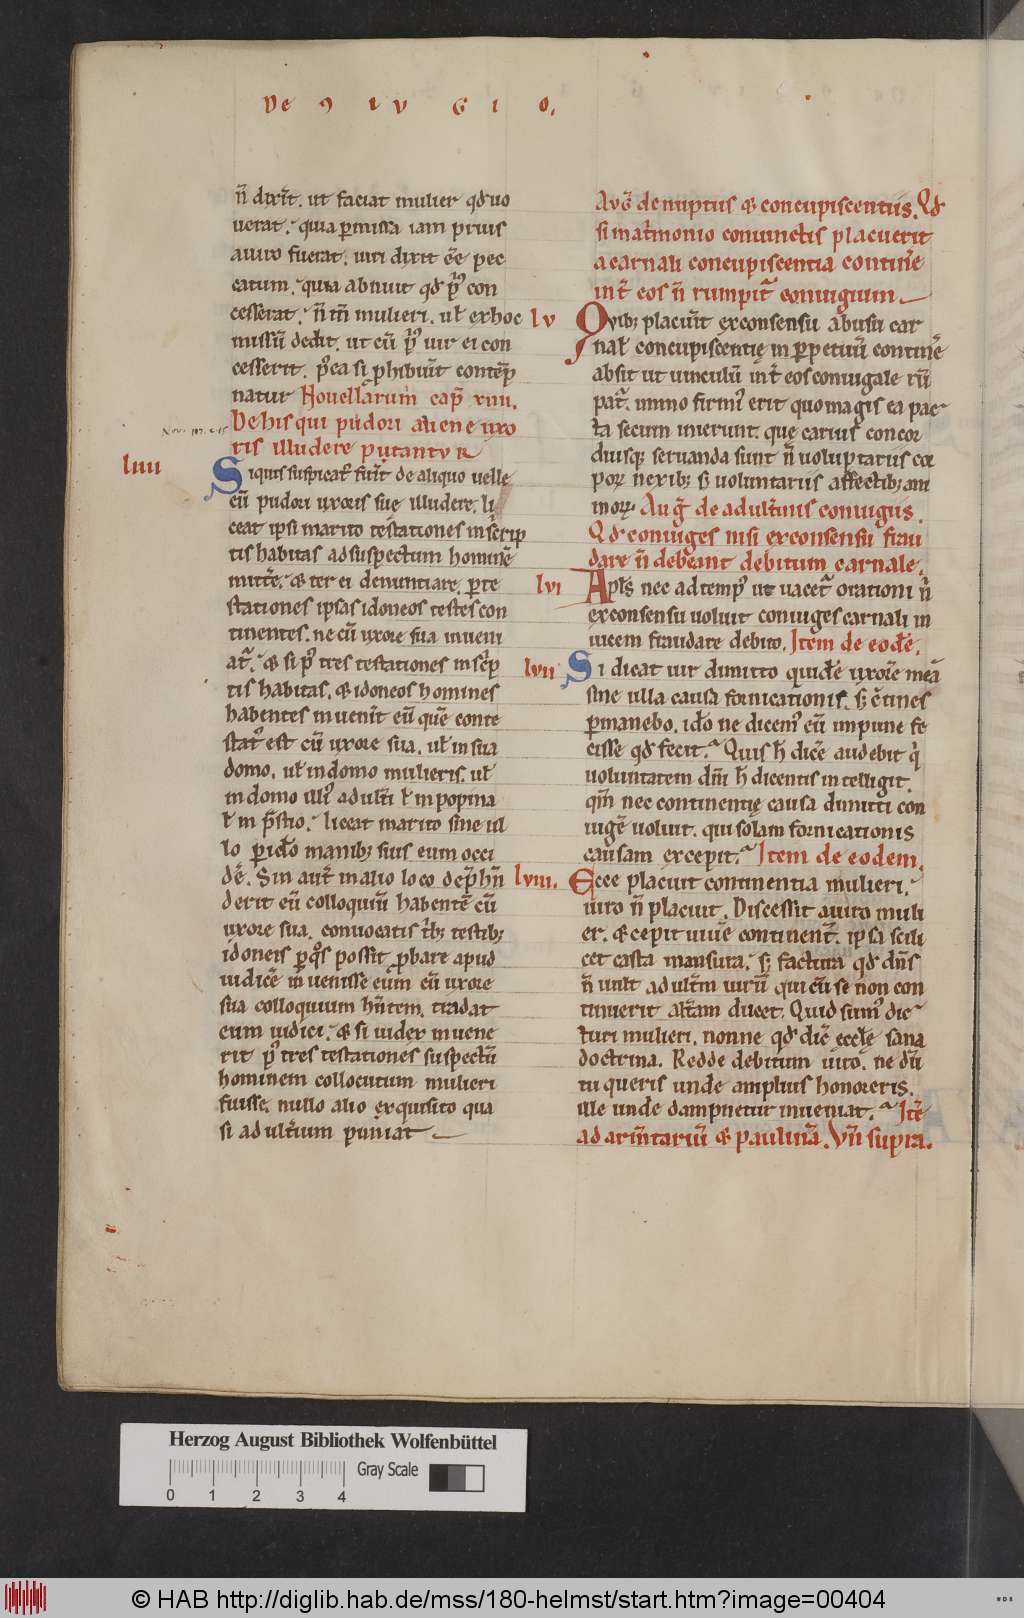 De ꝯ I V G I O.
n̄ dixit̄. ut faciat mulier qđ uo
uerat. quia ꝑmissa iam prius
a uiro fuerat. uiri dixit ēē pec
catum. quia abnuit qđ p̾ con
cesserat. n̄ tn̄ mulieri. ul̵ ex hoc
missū dedit. ut cū p̾ uir ei con
cesserit. p̾ea si ꝓhibuīt contēp
natur Nouellarum cap̄ xıııı.
De his qui pudori aliene uxo
ris illudere putantur
lıııı
Siquis suspicat᷑ fuīt de aliquo uelle
cū pudori uxoris suę illudere. li
ceat ipsi marito testationes in sc̄rip
tis habitas ad suspectum hominē
mitt̄e. & ter ei denuntiare. ꝑ te
stationes ipsas idoneos testes con
tinentes. ne cū uxore sua inueni
at᷑. & si p̾ tres testationes in sc̄p
tis habitas. & idoneos homines
habentes inuenīt eū quē conte
stat᷒ est cū uxore sua. ul̵ in sua
domo. ul̵ in domo mulieris. ul̵
in domo illi᷒ adult̄i l̵ in popina
l̵ in p̄stio. liceat marito sine ul
lo ꝑicl̵o manibꝫ suis eum occi
dē. Sin aut̄ in alio loco dep̄hn̄
derit eū colloquiū habentē cū
uxore sua. conuocatis t̄bꝫ testibꝫ
idoneis ꝑ qͦs possit ꝓbare apud
iudicē inuenisse eum cū uxore
sua colloquium hn̄tem. tradat
eum iudici. & si iudex inuene
rit p̾ tres testationes suspectū
hominem collocutum mulieri
fuisse. nullo alio exquisito qua
si adult̄ium puniat
Auḡ de nuptiis & concupiscentiis. Qđ
si mat̄monio coniunctis placuerit
a carnali concupiscentia continē̄e
int̄ eos n̄ rumpit᷑ coniugium
lv
Quibꝫ placuīt ex consensu ab usu car
nal̵ concupiscentię in ꝑpetuū continē̄e
absit ut uinculū int̄ eos coniugale rū
pat᷑. immo firmi᷒ erit quo magis ea pac
ta secum inierunt. que carius concor
diusqꝫ seruanda sunt n̄ uoluptatiis cor
poꝝ nexibꝫ. sꝫ uoluntariis affectibꝫ ani
moꝝ. Auḡ de adult̄inis coniugiis.
Qđ coniuges nisi ex consensu frau
dare n̄ debeant debitum carnale.
lvı
Apl̵s nec ad temp᷒ ut uacet᷑ orationi n̄
ex consensu uoluit coniuges carnali in
uicem fraudare debito. Item de eodē.
lvıı
Si dicat uir dimitto quidē uxorē meā
sine ulla causa fornicationis. sꝫ c̄tinēs
ꝑmanebo. ido ne dicem᷒ eū impune fe
cisse qđ fecit. Quis h̄ dicē̄e audebit qͥ
uoluntatem dn̄i h̄ dicentis intelligit.
qm̄ nec continentię causa dimitti con
iugē uoluit. qui solam fornicationis
causam excepit. Item de eodem.
lvııı.
Ecce placuit continentia mulieri.
uiro n̄ placuit. Discessit a uiro muli
er. & cepit uiuē̄e continent̄. ipsa scili
cet casta mansura. sꝫ factura qđ dn̄s
n̄ uult adult̄m uirū qui cū se non con
tinuerit alt̄am ducet. Quid sum᷒ dic
turi mulieri. nonne qđ dic̄ ęccl̵ę sana
doctrina. Redde debitum uiro. ne dū
tu queris unde amplius honoreris.
ille unde dampnetur inueniat. Itē
ad arm̄tariū & paulinā. Vn̄ supra.
Herzog August Bibliothek Wolfenbüttel
Gray Scale
0 1 2 3 4
© HAB http://diglib.hab.de/mss/180-helmst/start.htm?image=00404